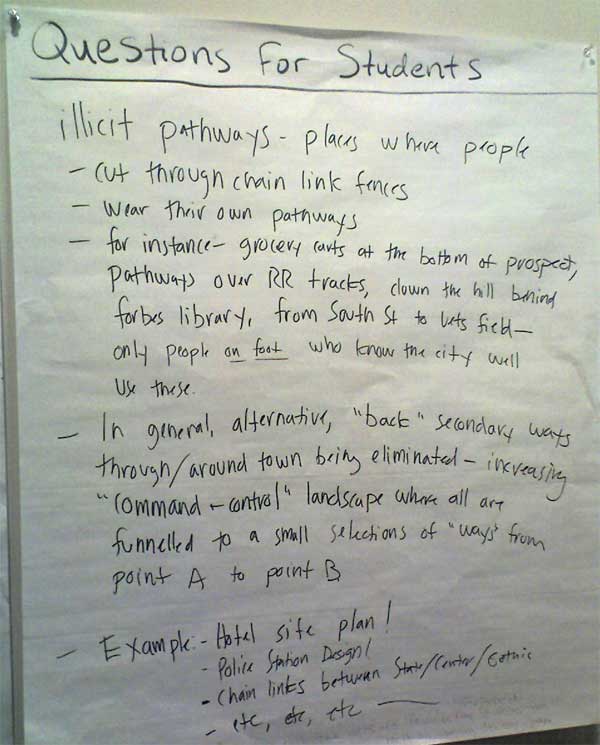 Questions For Students
illicit pathways - places where people
- cut through chain link fences
- wear their own pathways
- for instance - grocery carts at the bottom of prospect,
pathways over RR tracks, down the hill behind
forbes library, from South St to vets field -
only people on foot who know the city well
use these.
- In general, alternative, "back" secondary ways
through/around town being eliminated - increasing
"command + control" landscape where all are
funnelled to a small selections of "ways" from
point A to point B
- Example: - Hotel site plan!
- Police Station Design!
- Chain links between State/Center/Gothic
- etc, etc, etc